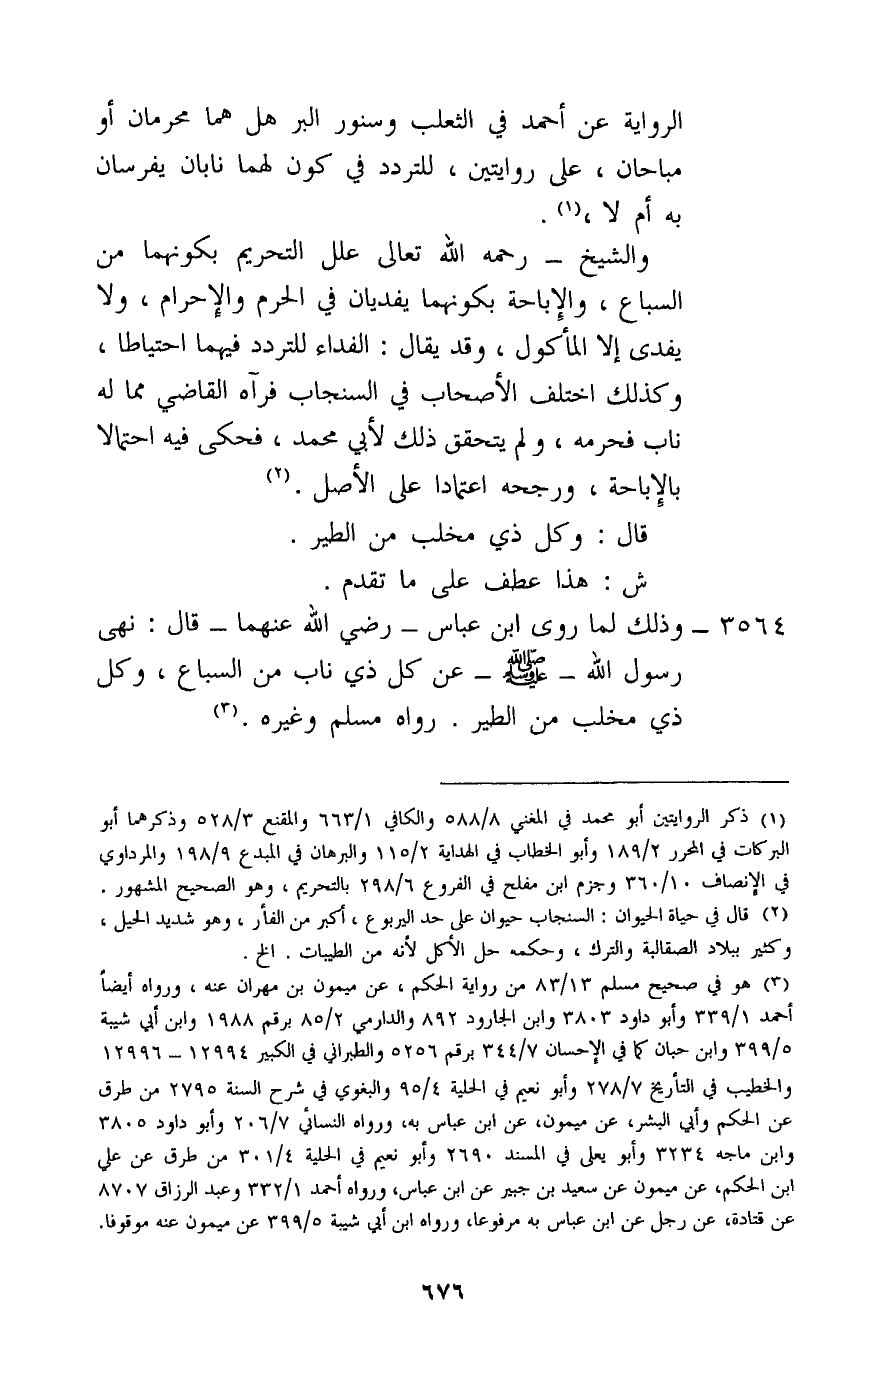 الرواية عن أحمد في الثعلب وسنور البر هل هما محرمان أو
مباحان ، على روايتين ، للتردد في كون لهما نابان يفرسان
به أم لا ،(١) .
والشيخ ــ رحمه الله تعالى علل التحريم بكونهما من
السباع ، والإباحة بكونهما يفديان في الحرم والإحرام ، ولا
يفدى إلا المأكول ، وقد يقال : الفداء للتردد فيهما احتياطا ،
وكذلك اختلف الأصحاب في السنجاب فرآه القاضي مما له
ناب فحرمه ، ولم يتحقق ذلك لأبي محمد ، فحكى فيه احتمالا
بالإباحة ، ورجحه اعتمادا على الأصل .(٢)
قال : وكل ذي مخلب من الطير .
ش : هذا عطف على ما تقدم .
٣٥٦٤ ــ وذلك لما روى ابن عباس ــ رضي الله عنهما ــ قال : نهى
رسول الله ــ ﷺ ــ عن كل ذي ناب من السباع ، وكل
ذي مخلب من الطير . رواه مسلم وغيره .(٣)
(١) ذكر الروايتين أبو محمد في المغني ٥٨٨/٨ والكافي ٦٦٣/١ والمقنع ٥٢٨/٣ وذكرهما أبو
البركات في المحرر ١٨٩/٢ وأبو الخطاب في الهداية ١١٥/٢ والبرهان في المبدع ١٩٨/٩ والمرداوي
في الإنصاف ٣٦٠/١٠ وجزم ابن مفلح في الفروع ٢٩٨/٦ بالتحريم ، وهو الصحيح المشهور .
(٢) قال في حياة الحيوان : السنجاب حيوان على حد اليربوع ، أكبر من الفأر ، وهو شديد الحيل ،
وكثير ببلاد الصقالبة والترك ، وحكمه حل الأكل لأنه من الطيبات . الخ .
(٣) هو في صحيح مسلم ٨٣/١٣ من رواية الحكم ، عن ميمون بن مهران عنه ، ورواه أيضاً
أحمد ٣٣٩/١ وأبو داود ٣٨٠٣ وابن الجارود ٨٩٢ والدارمي ٨٥/٢ برقم ١٩٨٨ وابن أبي شيبة
٣٩٩/٥ وابن حبان كما في الإحسان ٣٤٤/٧ برقم ٥٢٥٦ والطبراني في الكبير ١٢٩٩٤ ــ ١٢٩٩٦
والخطيب في التأريخ ٢٧٨/٧ وأبو نعيم في الحلية ٩٥/٤ والبغوي في شرح السنة ٢٧٩٥ من طرق
عن الحكم وأبي البشر، عن ميمون، عن ابن عباس به، ورواه النسائي ٢٠٦/٧ وأبو داود ٣٨٠٥
وابن ماجه ٣٢٣٤ وأبو يعلى في المسند ٢٦٩٠ وأبو نعيم في الحلية ٣٠١/٤ من طرق عن علي
ابن الحكم، عن ميمون عن سعيد بن جبير عن ابن عباس، ورواه أحمد ٣٣٢/١ وعبد الرزاق ٨٧٠٧
عن قتادة، عن رجل عن ابن عباس به مرفوعا، ورواه ابن أبي شيبة ٣٩٩/٥ عن ميمون عنه موقوفا.
٦٧٦